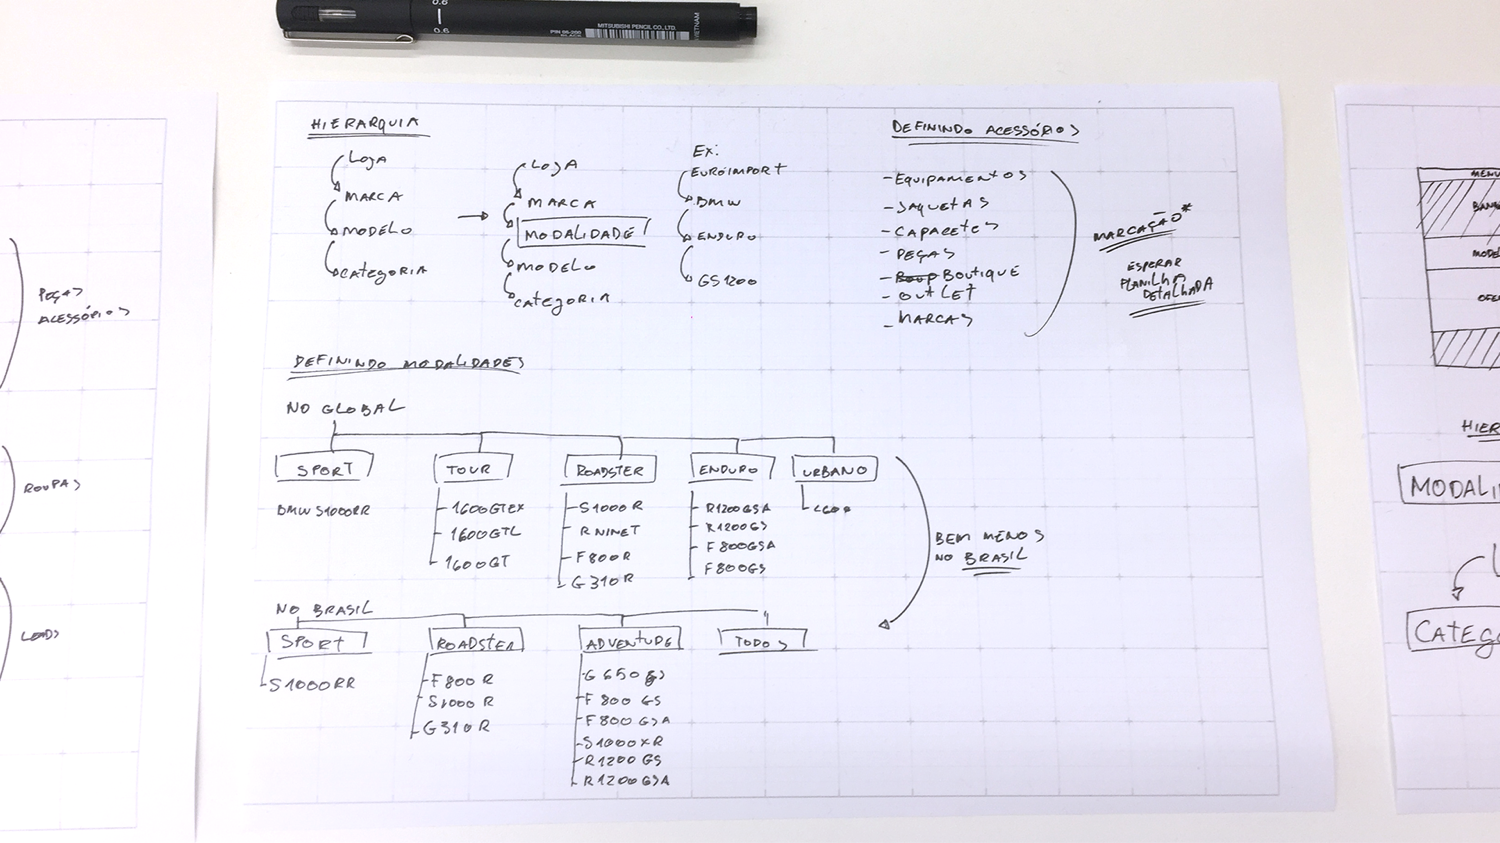 0.6
0.6
MITSUBISHI PENCIL CO., LTD.
PIN 06-200
VIETNAM
HIERARQUIA
LOJA
MARCA
MODELO
CATEGORIA
LOJA
MARCA
MODALIDADE!
MODELO
CATEGORIA
EX:
EUROIMPORT
BMW
ENDURO
GS1200
DEFININDO ACESSÓRIOS
- EQUIPAMENTOS
- JAQUETAS
- CAPACETES
- PEÇAS
- BOUTIQUE
- OUTLET
- MARCAS
MARCAÇÃO*
ESPERAR
PLANILHA
DETALHADA
DEFININDO MODALIDADES
NO GLOBAL
SPORT
BMW S1000RR
TOUR
1600GTEX
1600GTL
1600GT
ROADSTER
S1000R
R NINET
F800R
G310R
ENDURO
R1200GSA
R1200GS
F800GSA
F800GS
URBANO
BEM MENOS
NO BRASIL
NO BRASIL
SPORT
S1000RR
ROADSTER
F800R
S1000R
G310R
ADVENTURE
G650GS
F800GS
F800GSA
S1000XR
R1200GS
R1200GSA
TODOS
PEÇAS
ACESSÓRIOS
ROUPAS
LEADS
MENU
BAN
MODEL
OFE
HIER
MODALI
CATEG